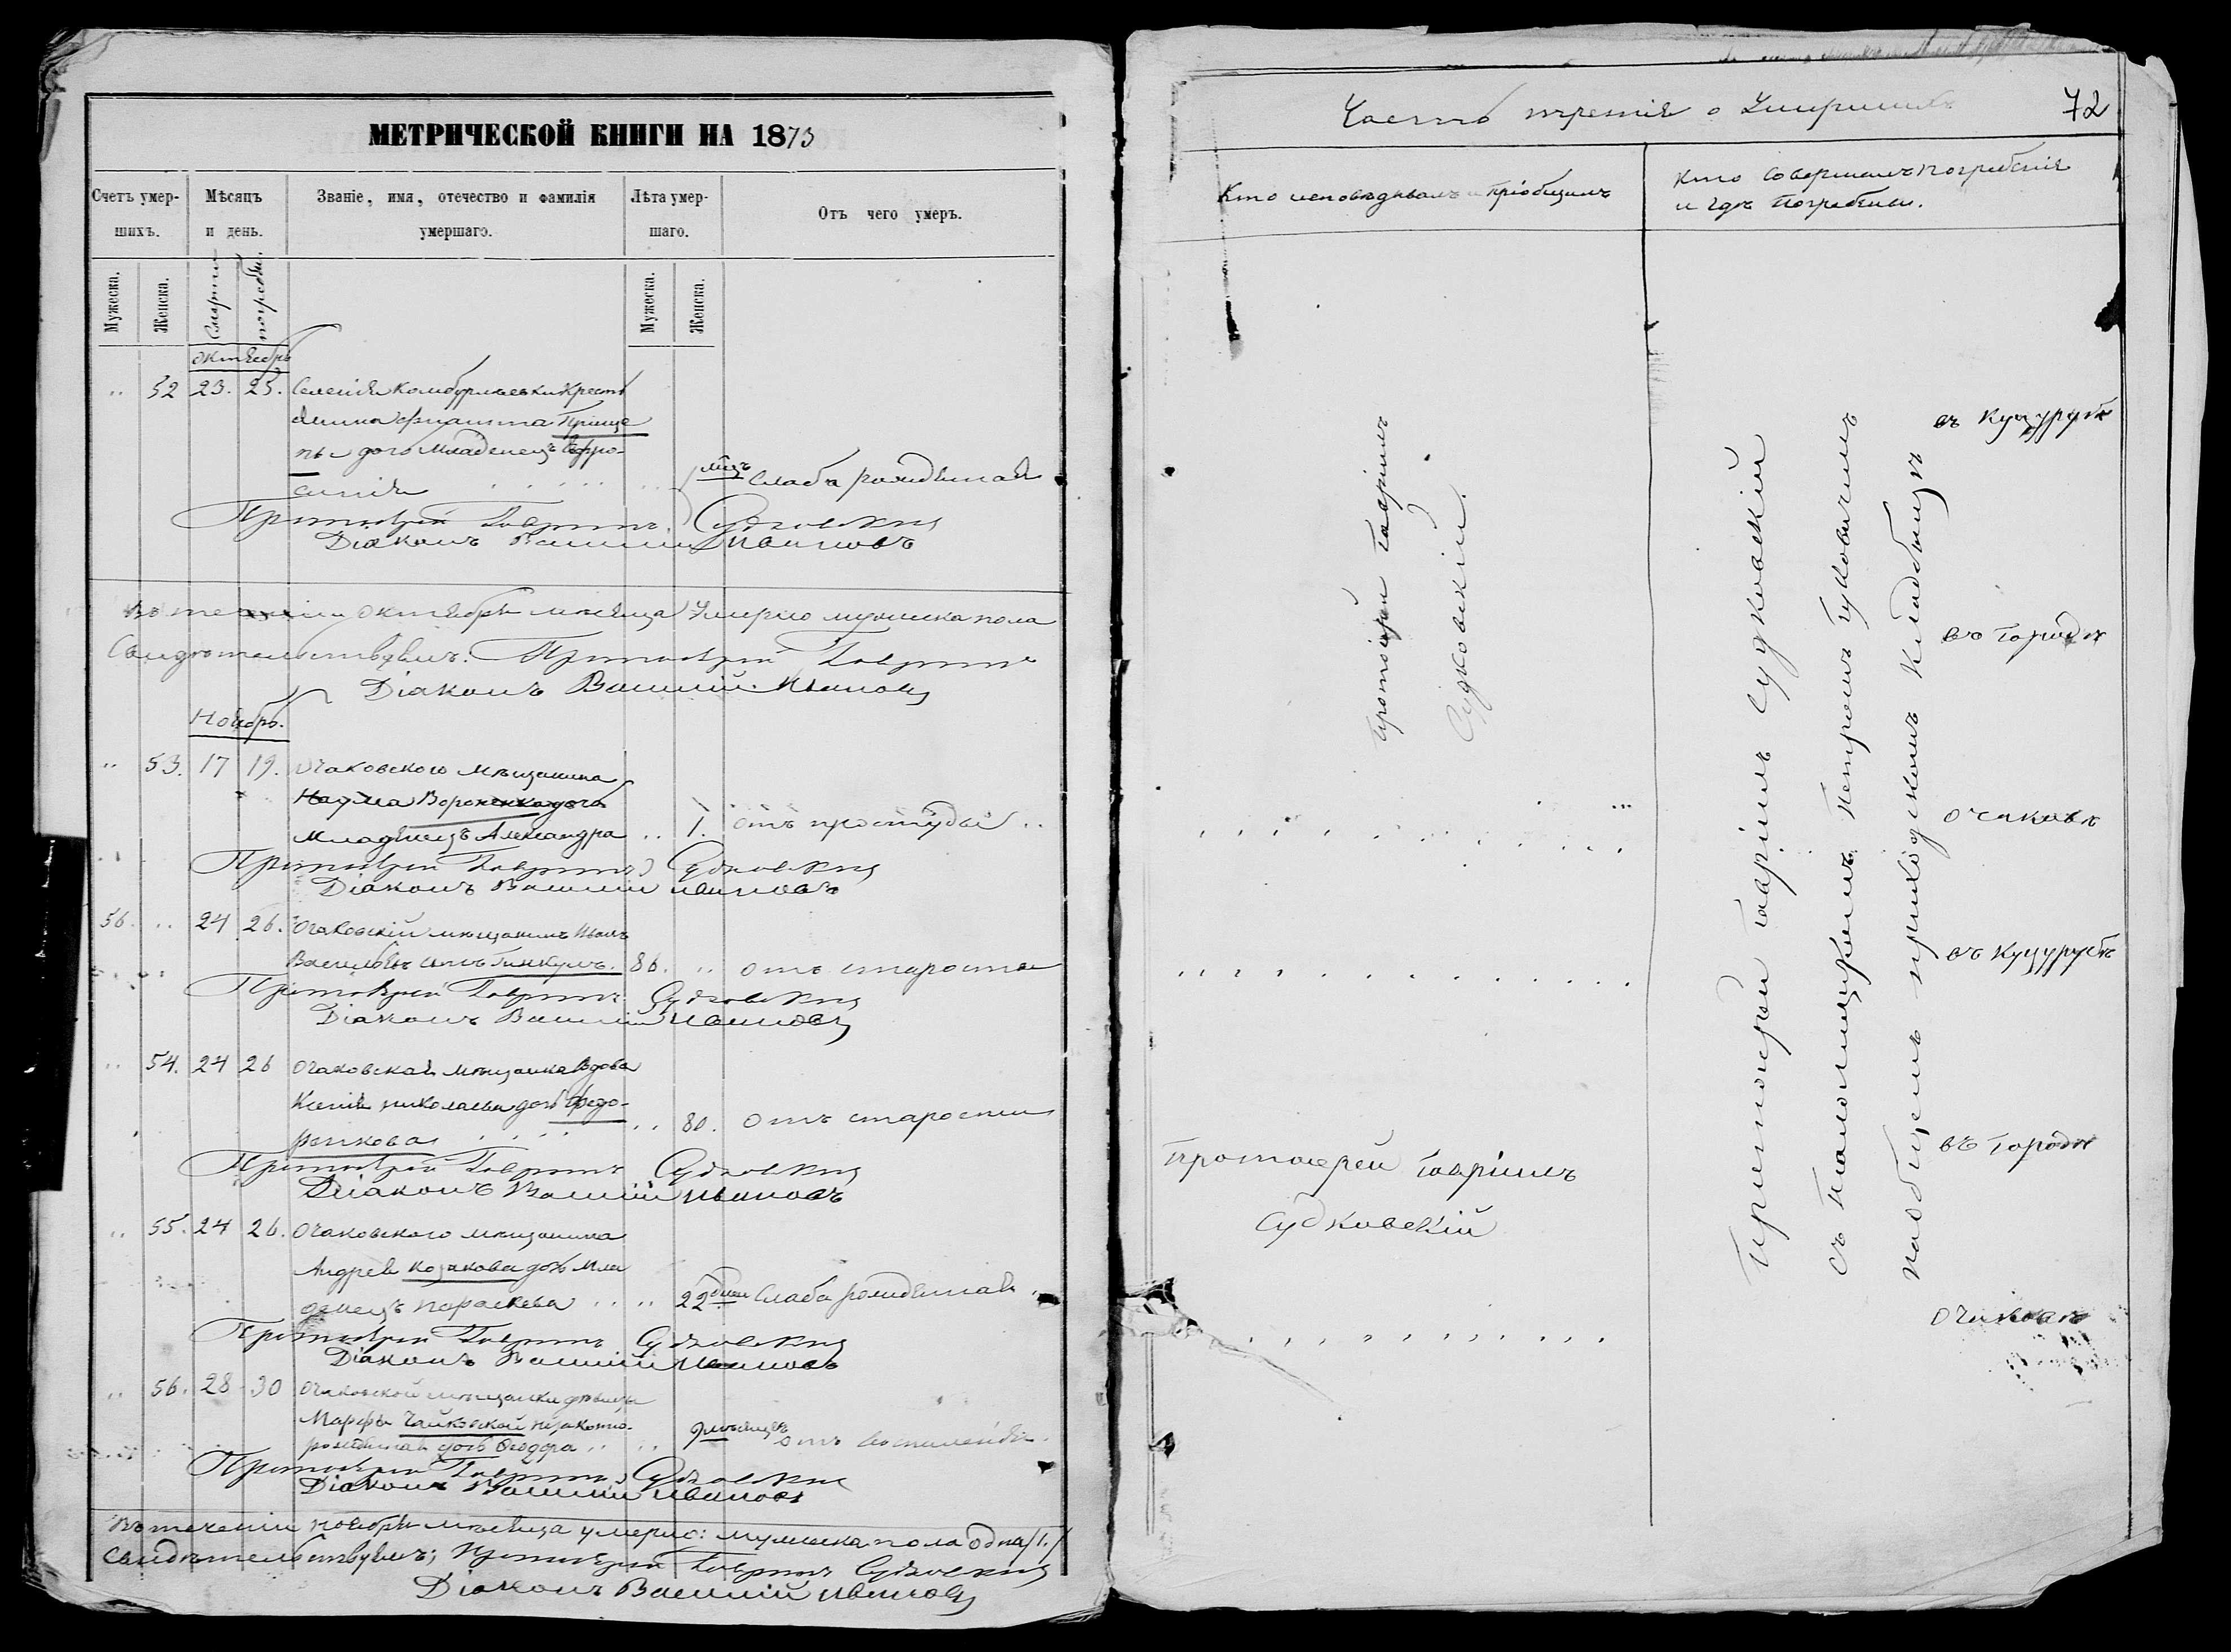 МЕТРИЧЕСКОЙ КНИГИ НА 1873
Счетъ умер-
шихъ.
Мѣсяцъ
и день.
Званіе, имя, отечество и фамилія
умершаго.
Лѣта умер-
шаго.
Отъ чего умеръ.
Мужеска.
Женска.
Смерти
погребен.
Мужеска.
Женска.
Октябрь
52 23. 25. Селенія Крестъ
янина
дочь Младенецъ Евфро-
синія
Слаба рожденная
Протоіерей Гавріилъ Судковскій
Діаконъ Василій Ивановъ
Въ теченіи Октября мѣсяца Умерло мужеска пола
Свидѣтельствуемъ: Протоіерей Гавріилъ
Діаконъ Василій Ивановъ
Ноябрь.
53. 17 19. Очаковского мѣщанина
Наума Вороненка дочь
Младенецъ Александра 1. отъ простуды
Протоіерей Гавріилъ Судковскій
Діаконъ Василій Ивановъ
56. 24 26. Очаковскій мѣщанинъ Иванъ
Васильевъ сынъ 86. отъ старости
Протоіерей Гавріилъ Судковскій
Діаконъ Василій Ивановъ
54. 24 26 Очаковская мѣщанка Вдова
Ксенія Николаева дочь Федо-
ренкова 80. отъ старости
Протоіерей Гавріилъ Судковскій
Діаконъ Василій Ивановъ
55. 24 26. Очаковского мѣщанина
Андрея Козакова дочь Мла
денецъ Параскева 22 дней Слаба рожденная
Протоіерей Гавріилъ Судковскій
Діаконъ Василій Ивановъ
56. 28 30 Очаковской мѣщанки дѣвицы
Марфы Чайковской незаконно-
рожденная дочь Феодора 9 мѣсяцевъ отъ воспаленія
Протоіерей Гавріилъ Судковскій
Діаконъ Василій Ивановъ
Въ теченіи Ноября мѣсяца умерло: мужеска пола одна /1./
Свидѣтельствуемъ; Протоіерей Гавріилъ Судковскій
Діаконъ Василій Ивановъ
Часть третія о Умершихъ 72
Кто исповѣдывалъ и пріобщилъ
Кто совершалъ погребеніе
и гдѣ Погребены.
Протоіерей Гавріилъ
Судковскій.
Протоіерей Гавріилъ Судковскій
съ Псаломщикомъ Петромъ Буковичимъ
на общемъ приходскомъ кладбищѣ
въ Куцурубѣ
въ Городѣ
Очаковѣ
въ Куцурубѣ
Протоіерей Гавріилъ
Судковскій
въ Городѣ
Очаковѣ